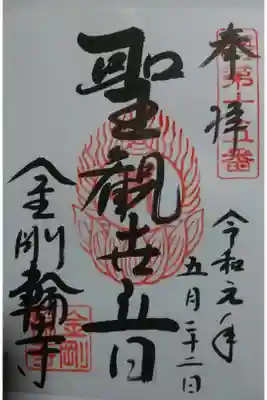 奉拝
第十五番
令和元年
五月二十二日
聖觀世音
金剛輪寺
金剛